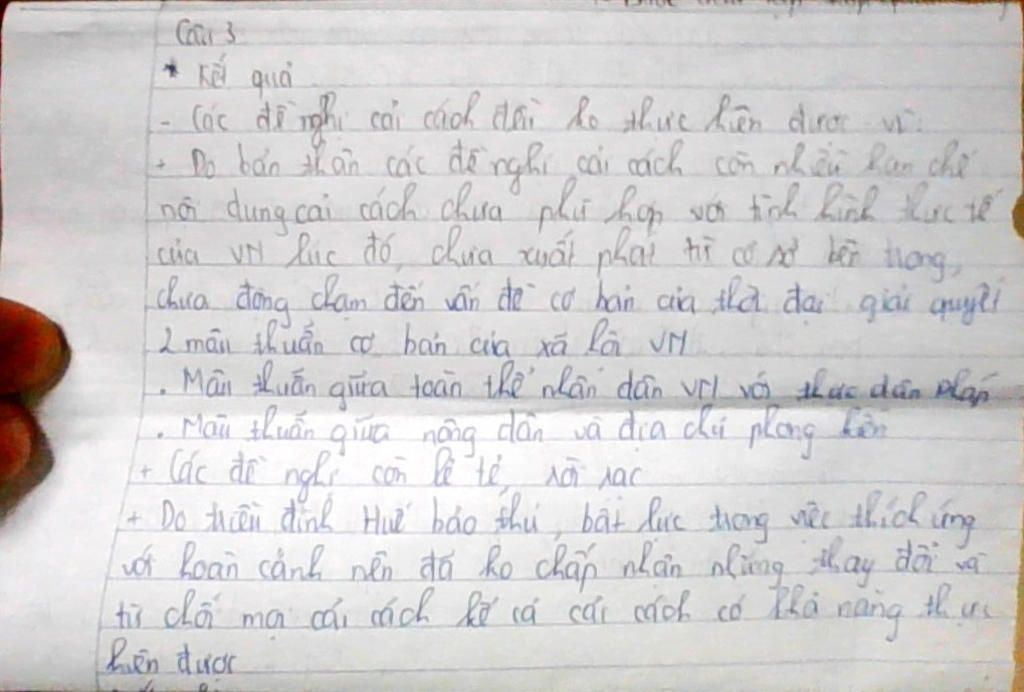 Câu 3
* Kết quả
- Các đề nghị cải cách đều ko thực hiện được vì:
+ Do bản thân các đề nghị cải cách còn nhiều hạn chế
nội dung cải cách chưa phù hợp với tình hình thực tế
của VN lúc đó, chưa xuất phát từ cơ sở bên trong,
chưa động chạm đến vấn đề cơ bản của thời đại giải quyết
2 mâu thuẫn cơ bản của xã hội VN
. Mâu thuẫn giữa toàn thể nhân dân VN với thực dân Pháp
. Mâu thuẫn giữa nông dân và địa chủ phong kiến
+ Các đề nghị còn lẻ tẻ, rời rạc
+ Do triều đình Huế bảo thủ, bất lực trong việc thích ứng
với hoàn cảnh nên đã ko chấp nhận những thay đổi và
từ chối mọi cải cách kể cả cải cách có khả năng thực
hiện được